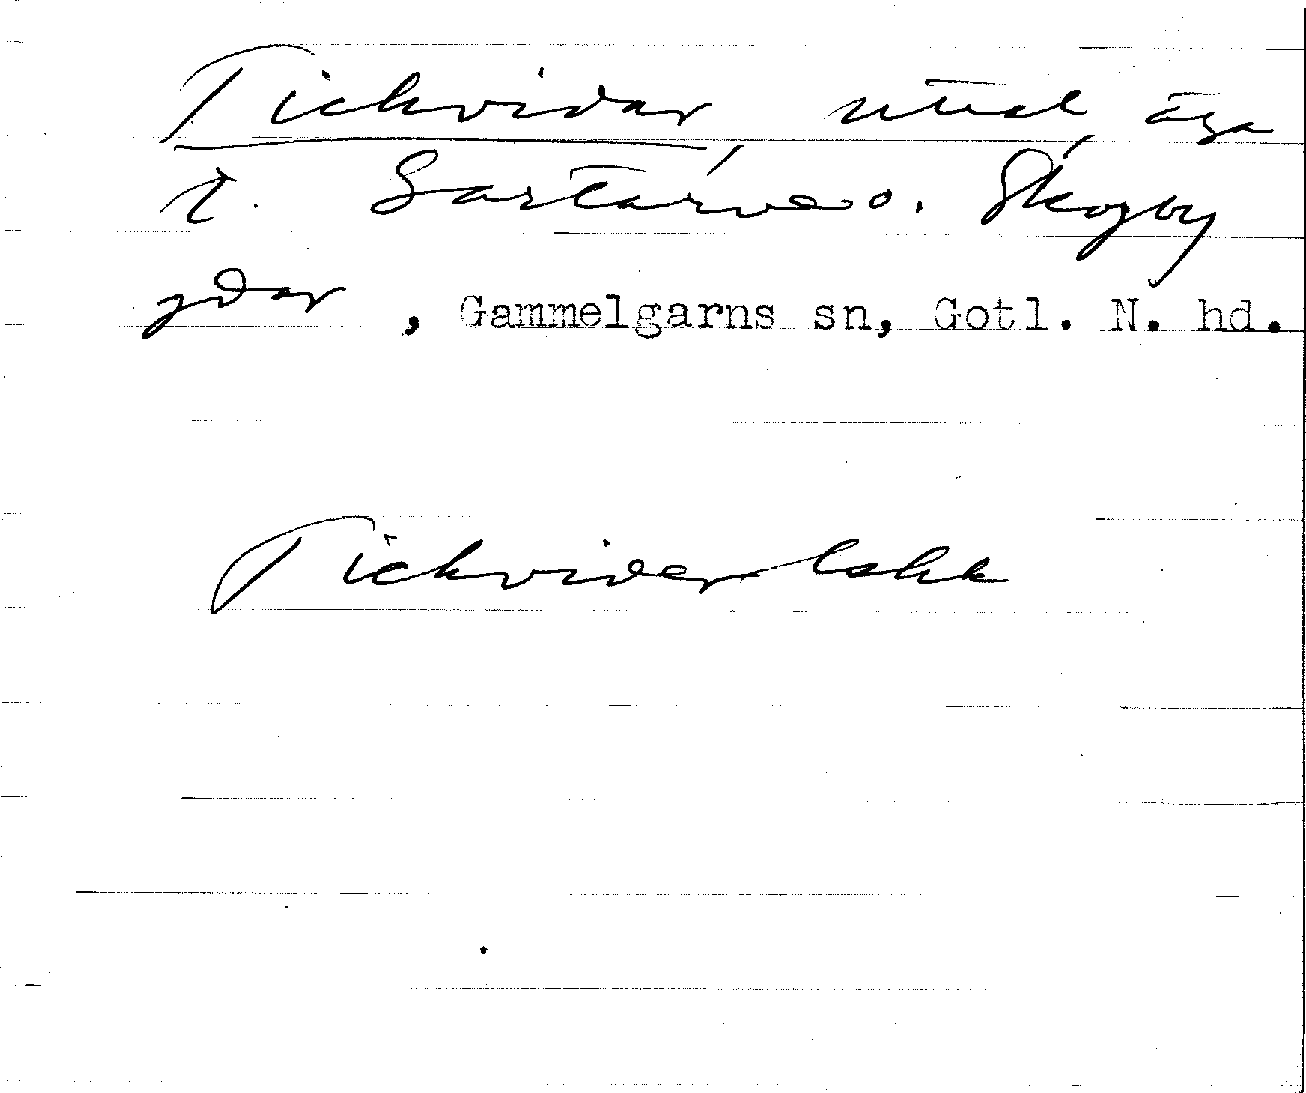 Tickvidar, utsl. äga
t. Sartarve o. Skogby
gdar, Gammelgarns sn, Gotl. N. hd.
Tickvider lakk